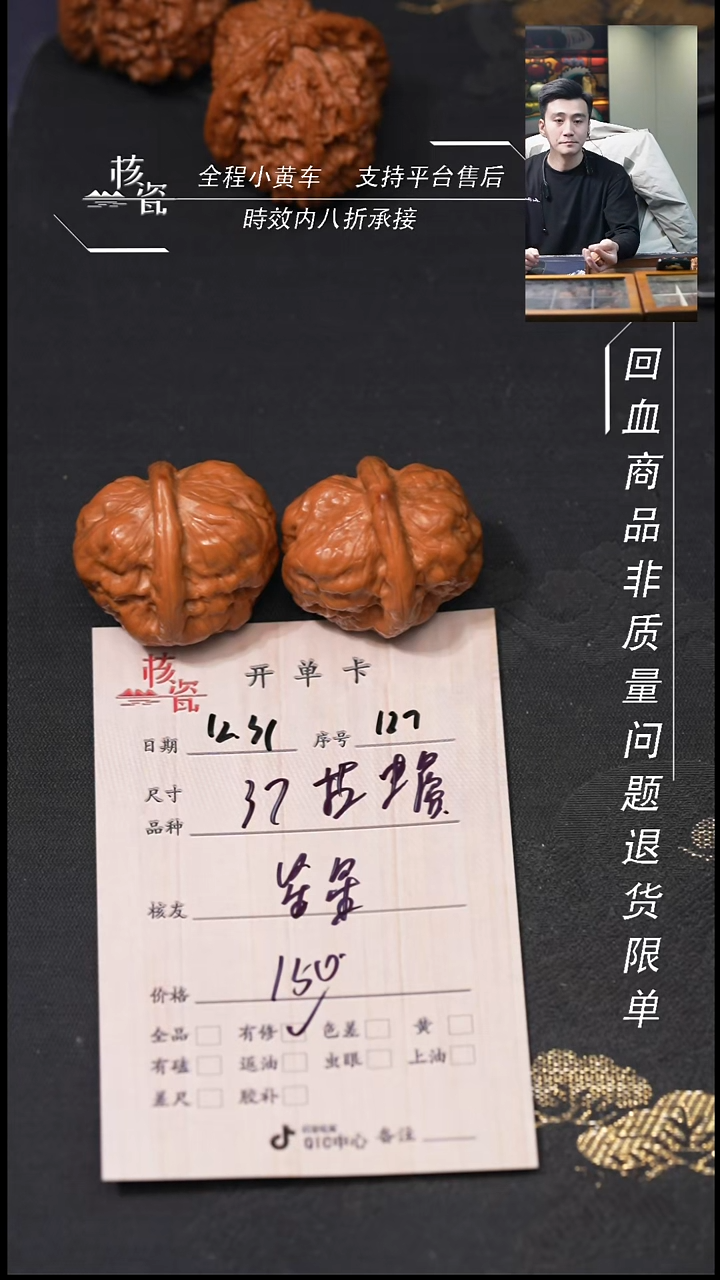 核瓷
全程小黄车 支持平台售后
時效内八折承接
回血商品非质量问题退货限单
核瓷
开单卡
日期 12.31 序号 127
尺寸 37
品种
核友
价格 150
全品 有修 色差 黄
有磕 返油 虫眼 上油
差尺 胶补
QIC中心 备注